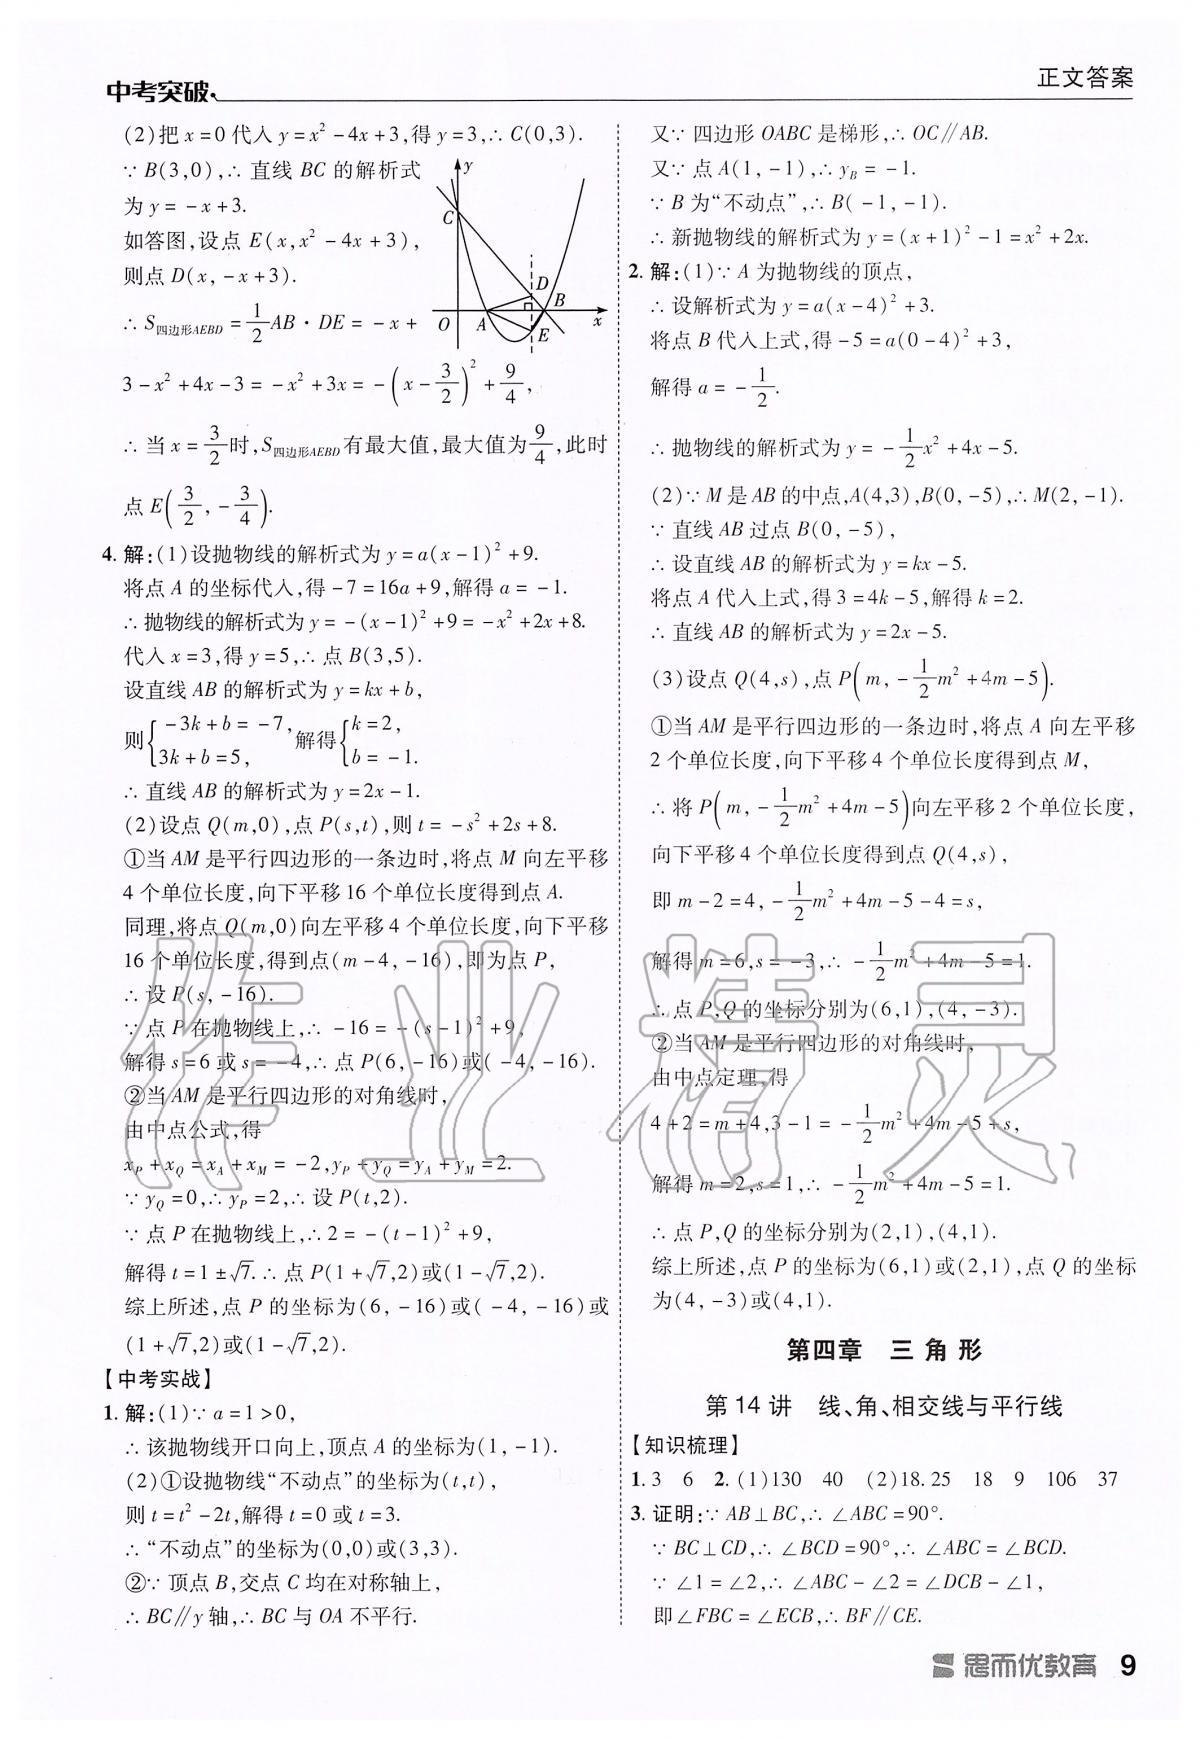 中考突破
正文答案
(2)把 x=0 代入 y=x²-4x+3,得 y=3,∴C(0,3).
∵B(3,0),∴直线 BC 的解析式
为 y=-x+3.
如答图,设点 E(x,x²-4x+3),
则点 D(x,-x+3).
∴S四边形AEBD=1/2 AB·DE=-x+
y
C
D
B
O
A
E
x
3-x²+4x-3=-x²+3x=-(x-3/2)²+9/4,
∴当 x=3/2时,S四边形AEBD有最大值,最大值为9/4,此时
点 E(3/2,-3/4).
4. 解:(1)设抛物线的解析式为 y=a(x-1)²+9.
将点 A 的坐标代入,得-7=16a+9,解得 a=-1.
∴抛物线的解析式为 y=-(x-1)²+9=-x²+2x+8.
代入 x=3,得 y=5,∴点 B(3,5).
设直线 AB 的解析式为 y=kx+b,
则{-3k+b=-7, 3k+b=5, 解得{k=2, b=-1.
∴直线 AB 的解析式为 y=2x-1.
(2)设点 Q(m,0),点 P(s,t),则 t=-s²+2s+8.
①当 AM 是平行四边形的一条边时,将点 M 向左平移
4 个单位长度,向下平移 16 个单位长度得到点 A.
同理,将点 Q(m,0)向左平移 4 个单位长度,向下平移
16 个单位长度,得到点(m-4,-16),即为点 P,
∴设 P(s,-16).
∵点 P 在抛物线上,∴-16=-(s-1)²+9,
解得 s=6 或 s=-4,∴点 P(6,-16)或(-4,-16).
②当 AM 是平行四边形的对角线时,
由中点公式,得
xP+xQ=xA+xM=-2,yP+yQ=yA+yM=2.
∵yQ=0,∴yP=2,∴设 P(t,2).
∵点 P 在抛物线上,∴2=-(t-1)²+9,
解得 t=1±√7.∴点 P(1+√7,2)或(1-√7,2).
综上所述,点 P 的坐标为(6,-16)或(-4,-16)或
(1+√7,2)或(1-√7,2).
【中考实战】
1. 解:(1)∵a=1>0,
∴该抛物线开口向上,顶点 A 的坐标为(1,-1).
(2)①设抛物线“不动点”的坐标为(t,t),
则 t=t²-2t,解得 t=0 或 t=3.
∴“不动点”的坐标为(0,0)或(3,3).
②∵顶点 B,交点 C 均在对称轴上,
∴BC∥y 轴,∴BC 与 OA 不平行.
又∵四边形 OABC 是梯形,∴OC∥AB.
又∵点 A(1,-1),∴yB=-1.
∵B 为“不动点”,∴B(-1,-1).
∴新抛物线的解析式为 y=(x+1)²-1=x²+2x.
2. 解:(1)∵A 为抛物线的顶点,
∴设解析式为 y=a(x-4)²+3.
将点 B 代入上式,得-5=a(0-4)²+3,
解得 a=-1/2.
∴抛物线的解析式为 y=-1/2x²+4x-5.
(2)∵M 是 AB 的中点,A(4,3),B(0,-5),∴M(2,-1).
∵直线 AB 过点 B(0,-5),
∴设直线 AB 的解析式为 y=kx-5.
将点 A 代入上式,得 3=4k-5,解得 k=2.
∴直线 AB 的解析式为 y=2x-5.
(3)设点 Q(4,s),点 P(m,-1/2m²+4m-5).
①当 AM 是平行四边形的一条边时,将点 A 向左平移
2 个单位长度,向下平移 4 个单位长度得到点 M,
∴将 P(m,-1/2m²+4m-5)向左平移 2 个单位长度,
向下平移 4 个单位长度得到点 Q(4,s),
即 m-2=4,-1/2m²+4m-5-4=s,
解得 m=6,s=-3,∴-1/2m²+4m-5=1.
∴点 P,Q 的坐标分别为(6,1),(4,-3).
②当 AM 是平行四边形的对角线时,
由中点定理,得
4+2=m+4,3-1=-1/2m²+4m-5+s,
解得 m=2,s=1,∴-1/2m²+4m-5=1.
∴点 P,Q 的坐标分别为(2,1),(4,1).
综上所述,点 P 的坐标为(6,1)或(2,1),点 Q 的坐标
为(4,-3)或(4,1).
第四章 三角形
第 14 讲 线、角、相交线与平行线
【知识梳理】
1. 3 6 2. (1)130 40 (2)18.25 18 9 106 37
3. 证明:∵AB⊥BC,∴∠ABC=90°.
∵BC⊥CD,∴∠BCD=90°,∴∠ABC=∠BCD.
∵∠1=∠2,∴∠ABC-∠2=∠DCB-∠1,
即∠FBC=∠ECB,∴BF∥CE.
作业精灵
思而优教育 9